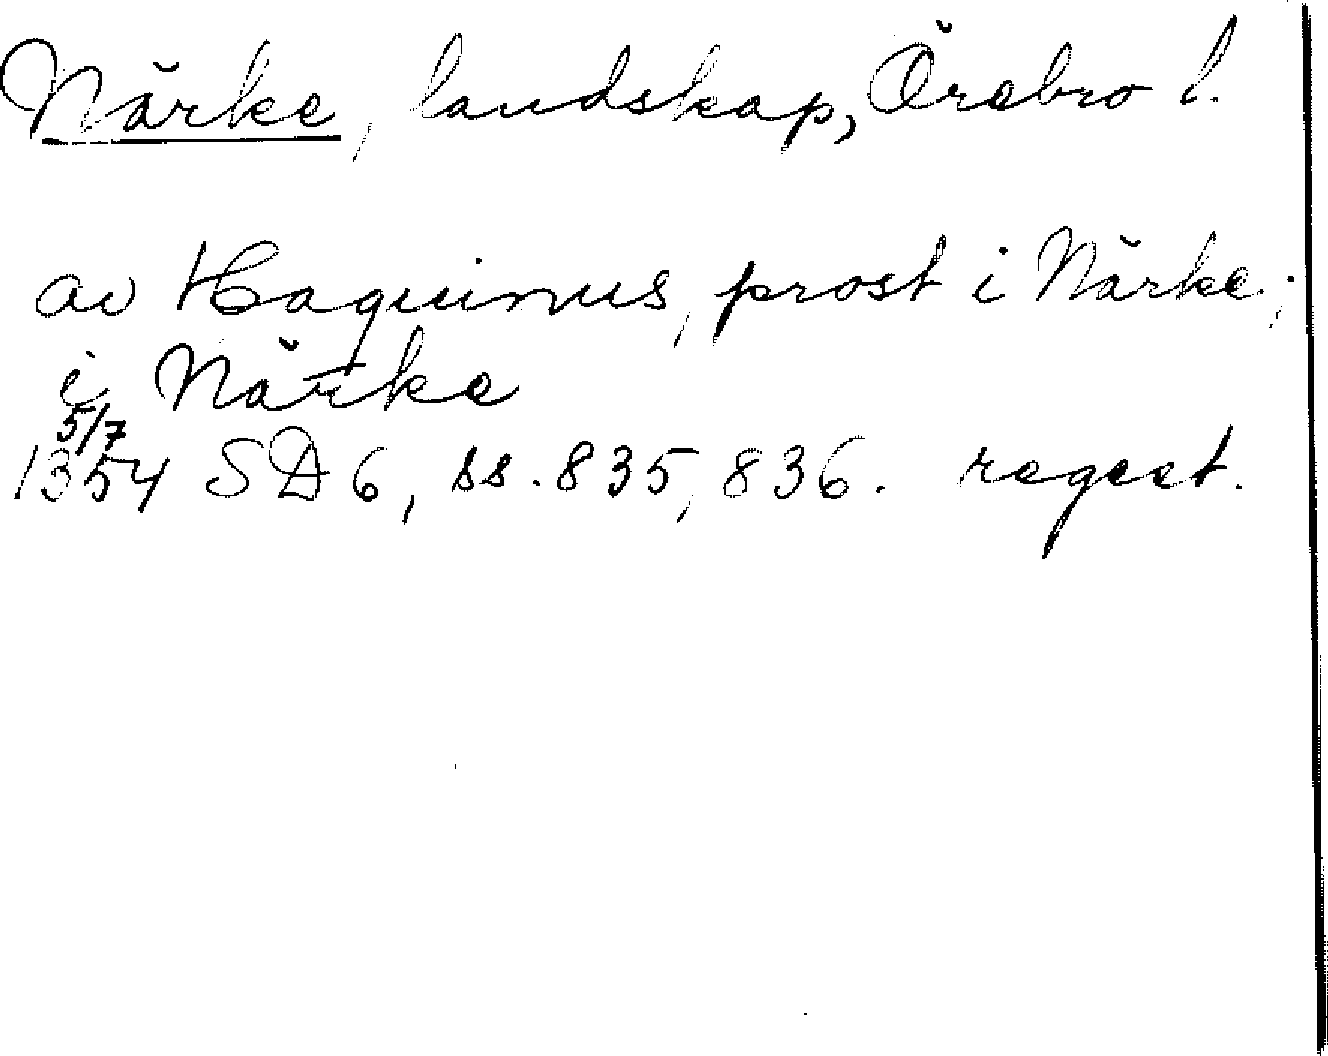 Närke, landskap, Örebro l.
av Haquinus, prost i Närke;
i Närke
5/7
1354 SD 6, ss. 835, 836. regest.